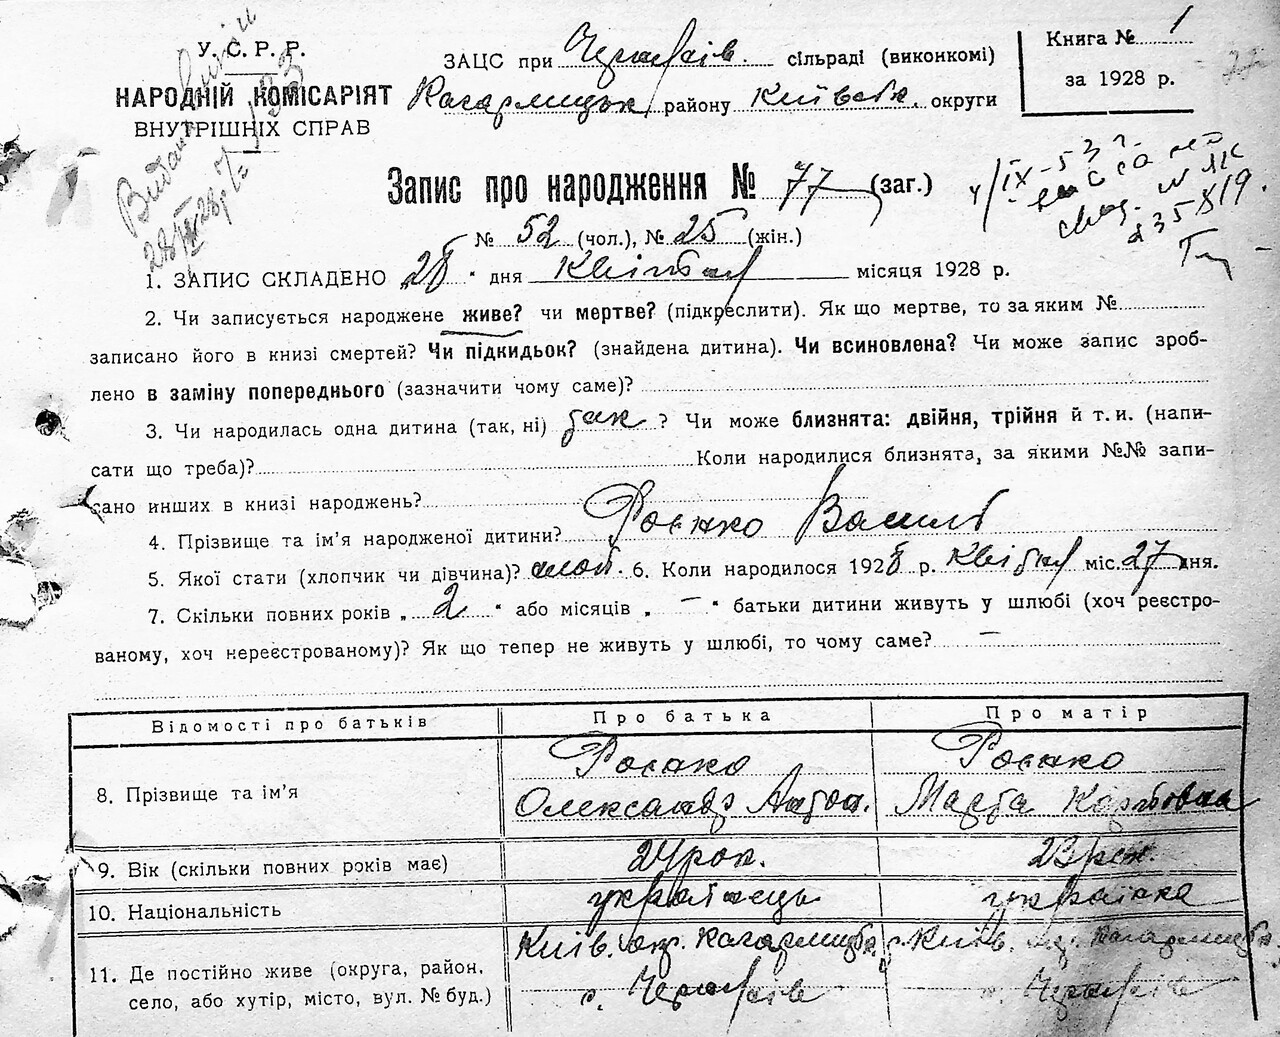 У. С. Р. Р.
НАРОДНІЙ КОМІСАРІЯТ
ВНУТРІШНІХ СПРАВ
ЗАЦС при сільраді (виконкомі)
Кагарлицьк. району Київськ. округи
Книга № 1
за 1928 р.
Запис про народження № 77 (заг.)
№ 52 (чол.), № 25 (жін.)
1. ЗАПИС СКЛАДЕНО 28 " дня Квітня місяця 1928 р.
2. Чи записується народжене живе? чи мертве? (підкреслити). Як що мертве, то за яким №
записано його в книзі смертей? Чи підкидьок? (знайдена дитина). Чи всиновлена? Чи може запис зроб-
лено в заміну попереднього (зазначити чому саме)?
3. Чи народилась одна дитина (так, ні) так ? Чи може близнята: двійня, трійня й т. и. (напи-
сати що треба)? Коли народилися близнята, за якими №№ запи-
сано инших в книзі народжень?
4. Прізвище та ім'я народженої дитини? Василь
5. Якої стати (хлопчик чи дівчина)? хлоп. 6. Коли народилося 1928 р. Квітня міс. 27 дня.
7. Скільки повних років „ 2 " або місяців „ — " батьки дитини живуть у шлюбі (хоч реєстро-
ваному, хоч нереєстрованому)? Як що тепер не живуть у шлюбі, то чому саме? —
Відомості про батьків Про батька Про матір
8. Прізвище та ім'я Олександр Антон. Марта Карповна
9. Вік (скільки повних років має) 24 рок. 23 рок.
10. Національність українець українка
11. Де постійно живе (округа, район, село, або хутір, місто, вул. № буд.) Київ. окр. Кагарлицьк. с. Київ. окр. Кагарлицьк. с.